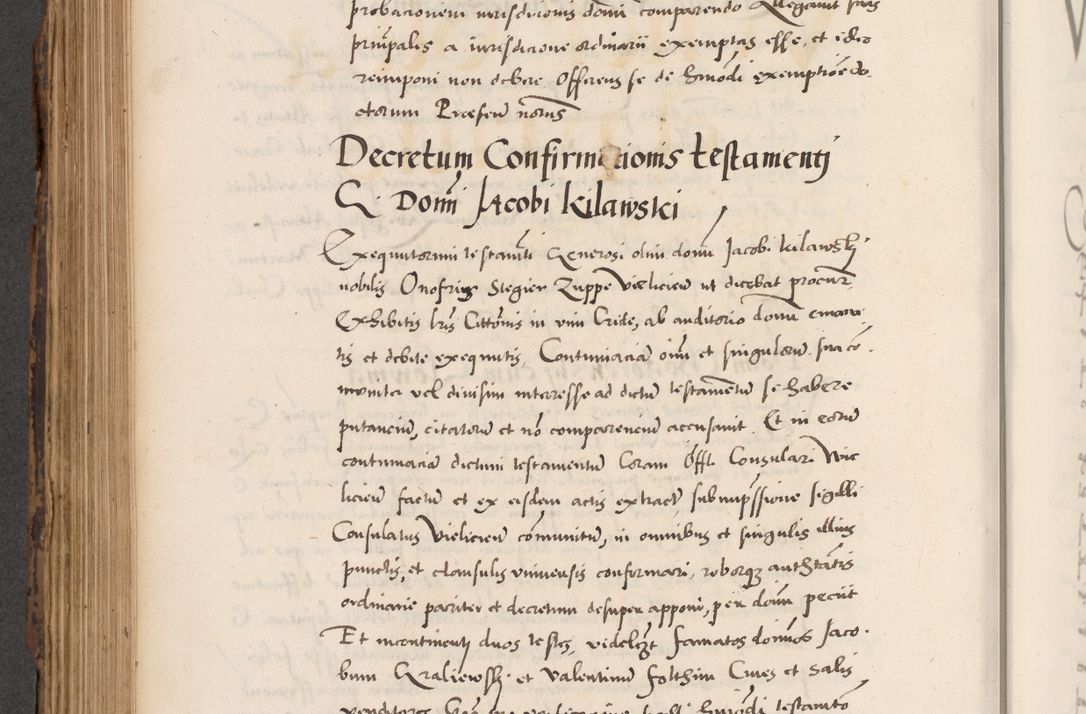 probacionem iurisdicionis domi comparendo Allegavit suas
principalis a iurisdicione ordinarii exemptas esse, et ideo
reimponi non debere Offerens se de hmodi exemptioe do-
cturum Presen notus
Decretum Confirmacionis testamenti
G Domi Jacobi Kilawski
Exequutorum testamti Generosi olim domi Jacobi Kilawskj
nobilis Onofrius Stegier Zuppe Vielicien ut dicebat procur
Exhibitis lris Cittonis in vim Cride, ab auditorio domi emana
tis et debite exequutis, Contumaciam oim et singulorum sua co
muniter vel divisim interesse ad dictum testamentum se habere
putancium, citatorum et no comparencium accusavit. Et in eorum
contumaciam dictum testamentum Coram Offi. Consulari Wie
licien factum et ex eisdem actis extractum, sub impssione sigilli
Consulatus Vielicien comunitum, in omnibus et singulis illius
punctis, et clausulis universis confirmari, roborq authtatis
ordinarie pariter et decretum desuper apponi, per dom peciit
Et incontinenti duos testes, videlczt famatos domos Jaco
bum Graliewskj et Valentinum Folthin Cives et Salis
venditores